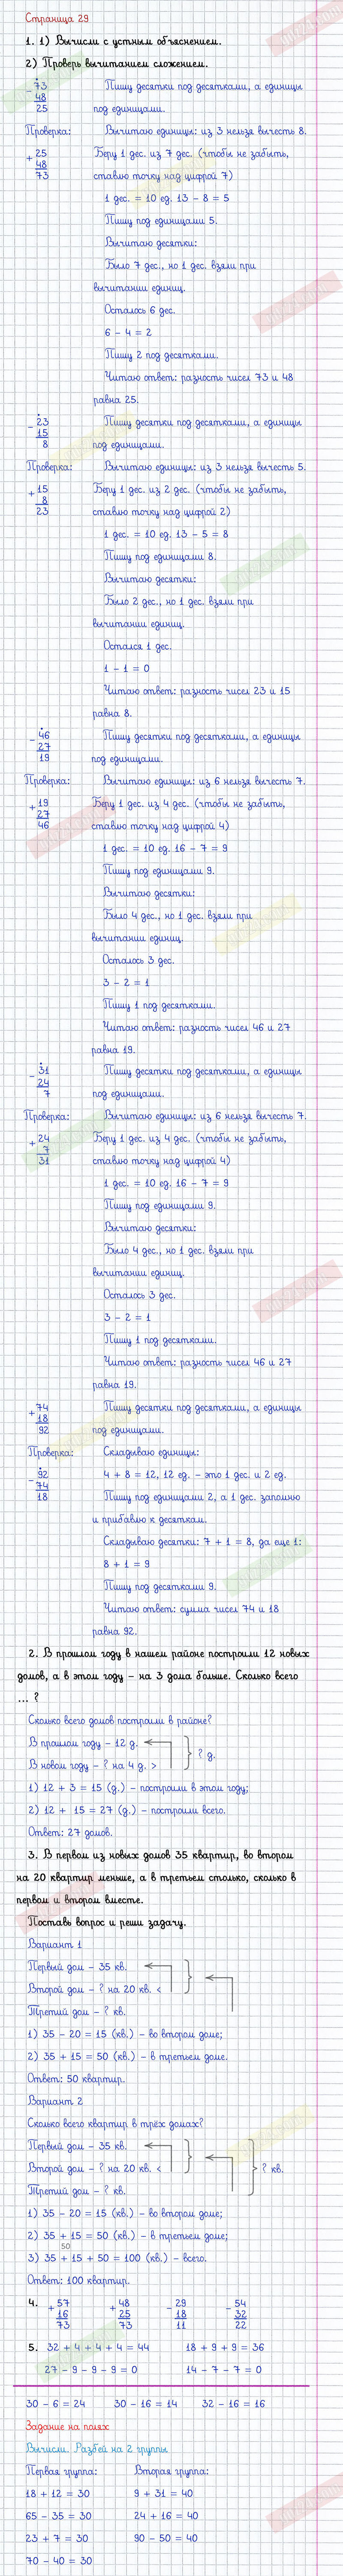 Страница 29
1. 1) Вычисли с устным объяснением.
2) Проверь вычитанием сложением.
- 73 Пишу десятки под десятками, а единицы
48
25 под единицами.
Проверка: Вычитаю единицы: из 3 нельзя вычесть 8.
+ 25 Беру 1 дес. из 7 дес. (чтобы не забыть,
48
73 ставлю точку над цифрой 7)
1 дес. = 10 ед. 13 - 8 = 5
Пишу под единицами 5.
Вычитаю десятки:
Было 7 дес., но 1 дес. взяли при
вычитании единиц.
Осталось 6 дес.
6 - 4 = 2
Пишу 2 под десятками.
Читаю ответ: разность чисел 73 и 48
равна 25.
- 23 Пишу десятки под десятками, а единицы
15
8 под единицами.
Проверка: Вычитаю единицы: из 3 нельзя вычесть 5.
+ 15 Беру 1 дес. из 2 дес. (чтобы не забыть,
8
23 ставлю точку над цифрой 2)
1 дес. = 10 ед. 13 - 5 = 8
Пишу под единицами 8.
Вычитаю десятки:
Было 2 дес., но 1 дес. взяли при
вычитании единиц.
Остался 1 дес.
1 - 1 = 0
Читаю ответ: разность чисел 23 и 15
равна 8.
- 46 Пишу десятки под десятками, а единицы
27
19 под единицами.
Проверка: Вычитаю единицы: из 6 нельзя вычесть 7.
+ 19 Беру 1 дес. из 4 дес. (чтобы не забыть,
27
46 ставлю точку над цифрой 4)
1 дес. = 10 ед. 16 - 7 = 9
Пишу под единицами 9.
Вычитаю десятки:
Было 4 дес., но 1 дес. взяли при
вычитании единиц.
Осталось 3 дес.
3 - 2 = 1
Пишу 1 под десятками.
Читаю ответ: разность чисел 46 и 27
равна 19.
- 31 Пишу десятки под десятками, а единицы
24
7 под единицами.
Проверка: Вычитаю единицы: из 6 нельзя вычесть 7.
+ 24 Беру 1 дес. из 4 дес. (чтобы не забыть,
7
31 ставлю точку над цифрой 4)
1 дес. = 10 ед. 16 - 7 = 9
Пишу под единицами 9.
Вычитаю десятки:
Было 4 дес., но 1 дес. взяли при
вычитании единиц.
Осталось 3 дес.
3 - 2 = 1
Пишу 1 под десятками.
Читаю ответ: разность чисел 46 и 27
равна 19.
+ 74 Пишу десятки под десятками, а единицы
18
92 под единицами.
Проверка: Складываю единицы:
- 92 4 + 8 = 12, 12 ед. - это 1 дес. и 2 ед.
74
18 Пишу под единицами 2, а 1 дес. запомню
и прибавлю к десяткам.
Складываю десятки: 7 + 1 = 8, да еще 1:
8 + 1 = 9
Пишу под десятками 9.
Читаю ответ: сумма чисел 74 и 18
равна 92.
2. В прошлом году в нашем районе построили 12 новых
домов, а в этом году - на 3 дома больше. Сколько всего
... ?
Сколько всего домов построили в районе?
В прошлом году - 12 д.
В новом году - ? на 4 д. > ? д.
1) 12 + 3 = 15 (д.) - построили в этом году;
2) 12 + 15 = 27 (д.) - построили всего.
Ответ: 27 домов.
3. В первом из новых домов 35 квартир, во втором
на 20 квартир меньше, а в третьем столько, сколько в
первом и втором вместе.
Поставь вопрос и реши задачу.
Вариант 1
Первый дом - 35 кв.
Второй дом - ? на 20 кв. <
Третий дом - ? кв.
1) 35 - 20 = 15 (кв.) - во втором доме;
2) 35 + 15 = 50 (кв.) - в третьем доме.
Ответ: 50 квартир.
Вариант 2
Сколько всего квартир в трёх домах?
Первый дом - 35 кв.
Второй дом - ? на 20 кв. < ? кв.
Третий дом - ? кв.
1) 35 - 20 = 15 (кв.) - во втором доме;
2) 35 + 15 = 50 (кв.) - в третьем доме;
50
3) 35 + 15 + 50 = 100 (кв.) - всего.
Ответ: 100 квартир.
4. + 57 + 48 - 29 - 54
16 25 18 32
73 73 11 22
5. 32 + 4 + 4 + 4 = 44 18 + 9 + 9 = 36
27 - 9 - 9 - 9 = 0 14 - 7 - 7 = 0
30 - 6 = 24 30 - 16 = 14 32 - 16 = 16
Задание на полях
Вычисли. Разбей на 2 группы
Первая группа: Вторая группа:
18 + 12 = 30 9 + 31 = 40
65 - 35 = 30 24 + 16 = 40
23 + 7 = 30 90 - 50 = 40
70 - 40 = 30